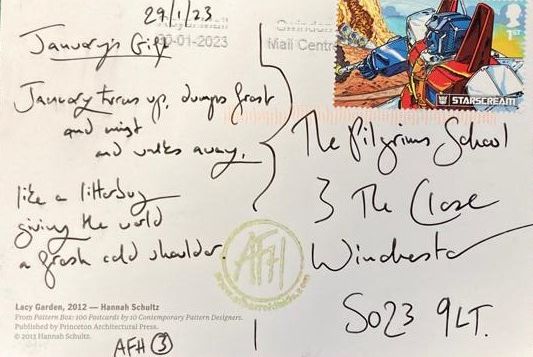 29/1/23
January's Gift
Royal Mail
30-01-2023
Swindon
Mail Centre
1ST
STARSCREAM
January turns up, dumps frost
and mist
and walks away,
like a litterbug
giving the world
a frosh cold shoulder.
The Pilgrims School
3 The Close
Winchester
SO23 9LT.
AFH
Lacy Garden, 2012 — Hannah Schultz
From Pattern Box: 100 Postcards by 10 Contemporary Pattern Designers.
Published by Princeton Architectural Press.
© 2013 Hannah Schultz.
AFH 3